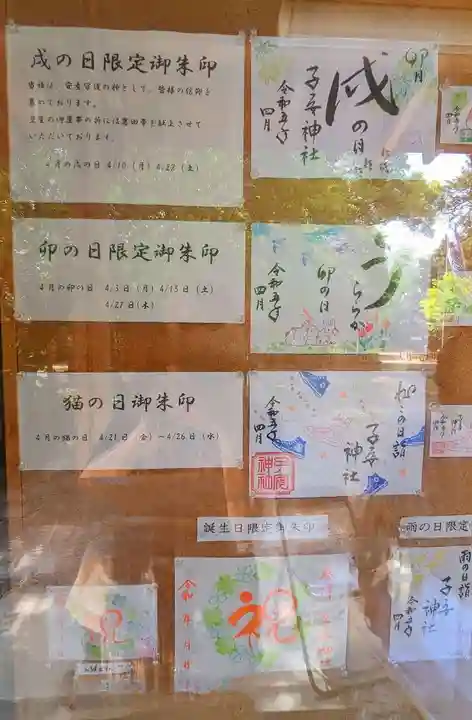 戌の日限定御朱印
当社は、安産守護の神として、皆様の信仰を
集めております。
皇室の御慶事の折には
いただいております。
4月の戌の日 4/10（月）4/22（土）
卯月
戌の日
子安神社
令和五年
四月
卯の日限定御朱印
4月の卯の日 4/3（月）4/15（土）
4/27（木）
うららか
卯の日
令和五年
四月
猫の日御朱印
4月の猫の日 4/21（金）～4/26（水）
ねこの日詣
子安
神社
令和五年
四月
子安
神社
誕生日限定御朱印
雨の日限定
祝
祝
令和 年 月 日
雨の日詣
子安
神社
令和五年
四月